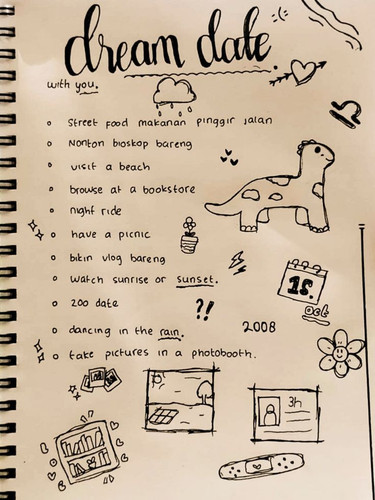 dream date.
with you.
Street food makanan pinggir jalan
Nonton bioskop bareng
visit a beach
browse at a bookstore
night ride
have a picnic
bikin vlog bareng
watch sunrise or sunset.
zoo date
15.
oct
?!
dancing in the rain.
2008
take pictures in a photobooth.
3h